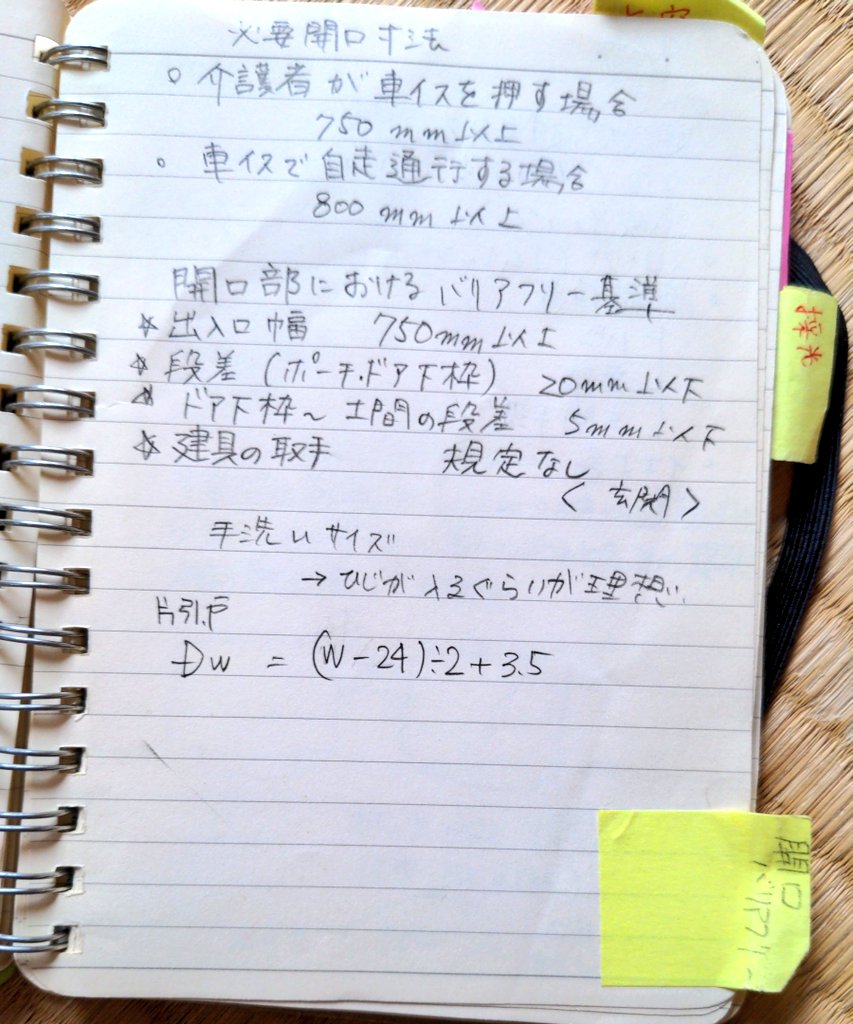 必要開口寸法
○ 介護者が車イスを押す場合
750 mm以上
○ 車イスで自走通行する場合
800 mm以上
開口部におけるバリアフリー基準
☆ 出入口幅 750mm以上
☆ 段差 (ポーチ・ドア下枠) 20mm以下
☆ ドア下枠〜土間の段差 5mm以下
☆ 建具の取手 規定なし
< 玄関 >
手洗いサイズ
→ ひじが入るぐらいが理想.
片引戸
DW = (W-24)÷2+3.5
採光
開口
バリアフリー